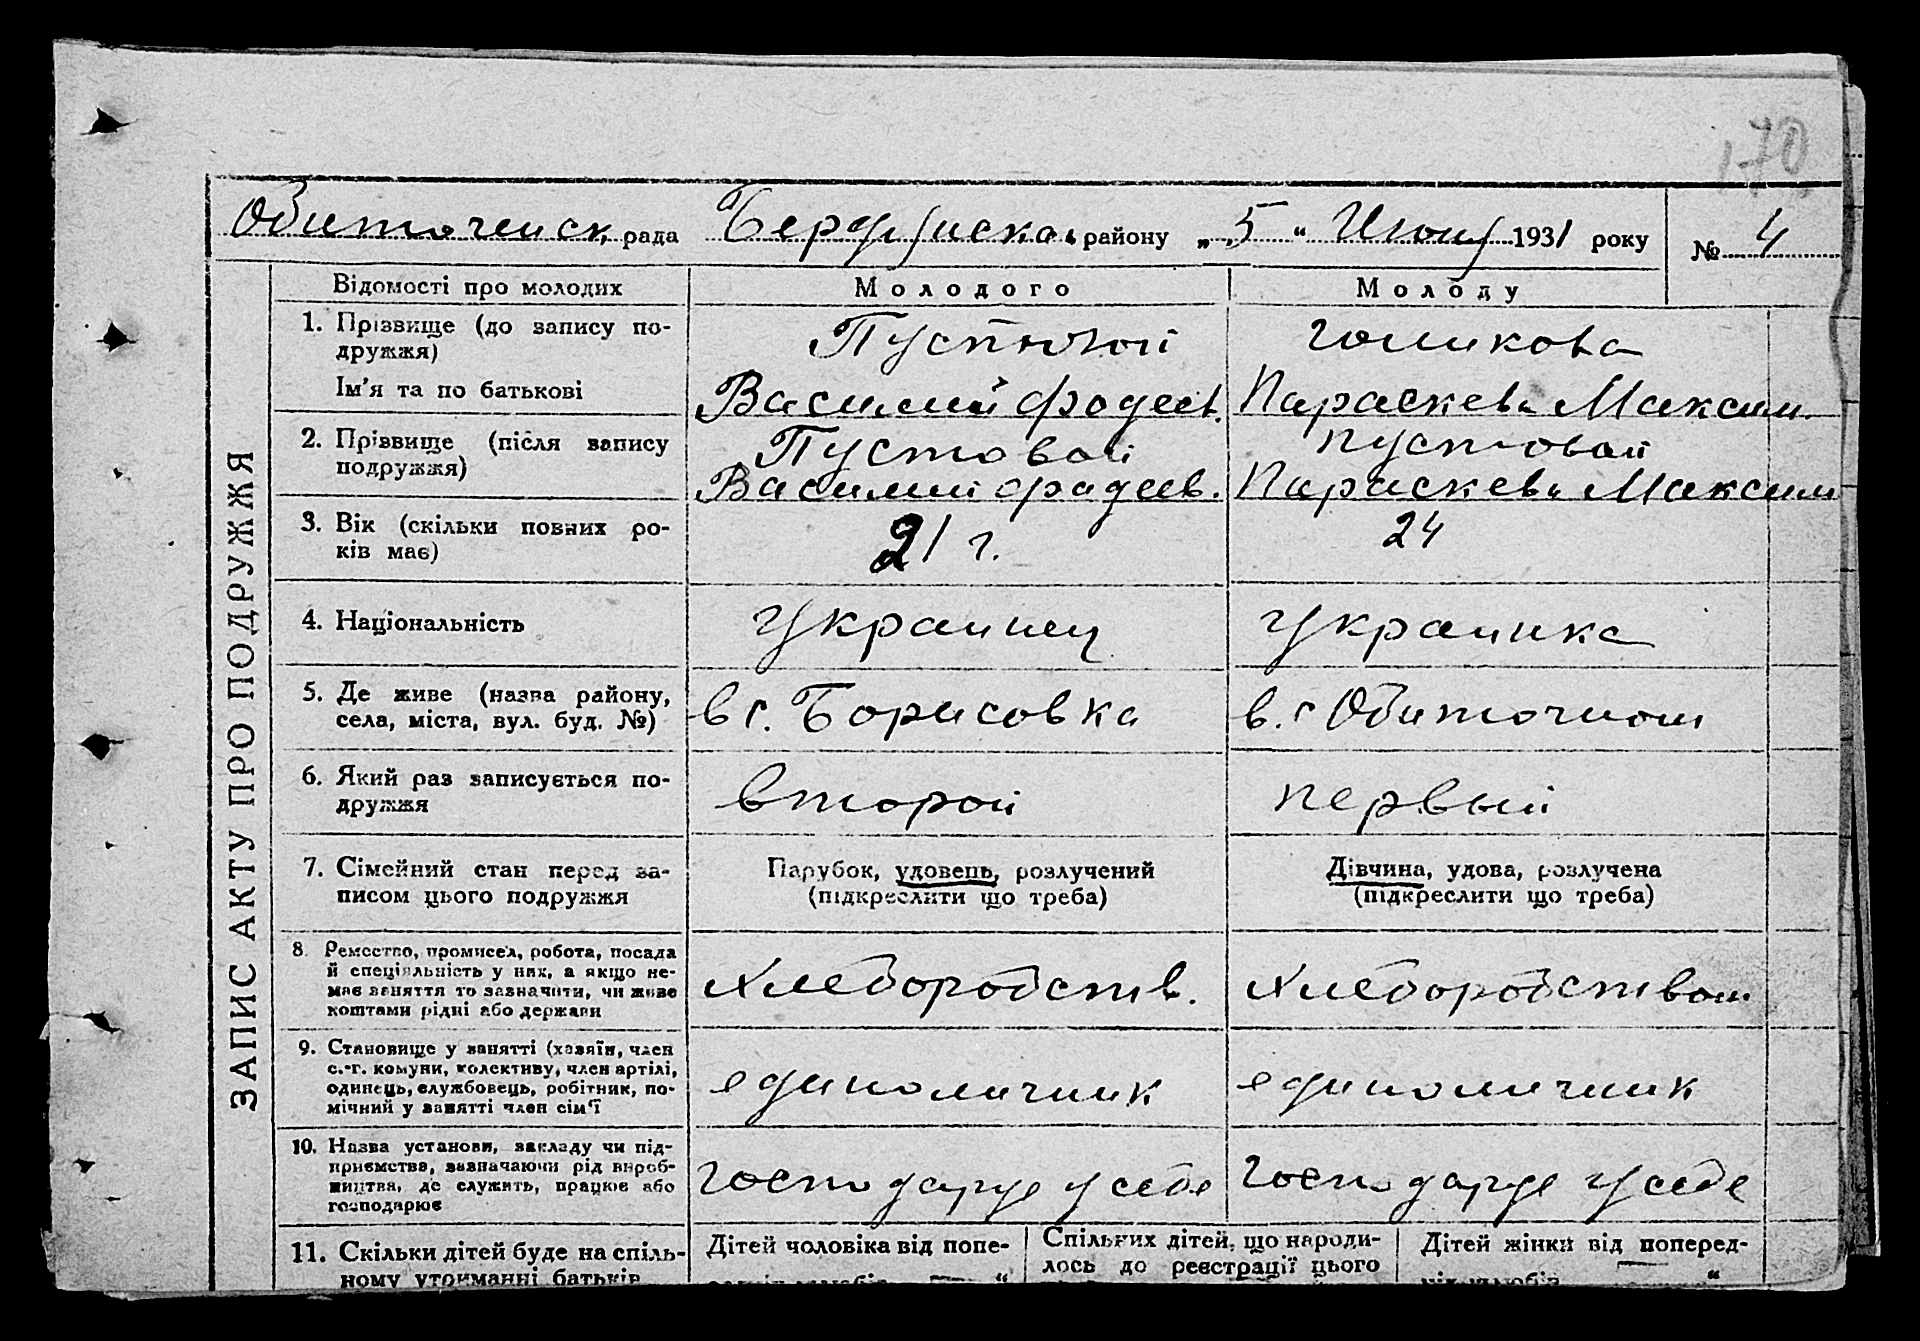 170
Обиточенск рада Бердянско. району „ 5 “ Июня 1931 року № 4
ЗАПИС АКТУ ПРО ПОДРУЖЖЯ
Відомості про молодих Молодого Молоду
1. Прізвище (до запису по- Пустовой Голикова
дружжя)
Ім'я та по батькові Василий фадеев. Параскева Максим.
2. Прізвище (після запису Пустовой Пустовой
подружжя) Василий фадеев. Параскева Максим
3. Вік (скільки повних ро- 21 г. 24
ків має)
4. Національність украинец украинка
5. Де живе (назва району, в с. Борисовка в. с Обиточном
села, міста, вул. буд. №)
6. Який раз записується по- второй первый
дружжя
7. Сімейний стан перед за- Парубок, удовець, розлучений Дівчина, удова, розлучена
писом цього подружжя (підкреслити що треба) (підкреслити що треба)
8. Ремество, промисел, робота, посада
й спеціяльність у них, а якщо не- хлеборобств. хлеборобством
має заняття то зазначити, чи живе
коштами рідні або держави
9. Становище у занятті (хазяїн, член
с.-г. комуни, колективу, член артілі, единоличник единоличник
одинець, службовець, робітник, по-
мічний у занятті член сім'ї
10. Назва установи, закладу чи під-
приємства, зазначаючи рід вироб- господарує у себе господарує у себе
ництва, де служить, працює або
господарює
11. Скільки дітей буде на спіль- Дітей чоловіка від попе- Спільних дітей, що народи- Дітей жінки від поперед-
ному утриманні батьків — “ лось до реєстрації цього — “